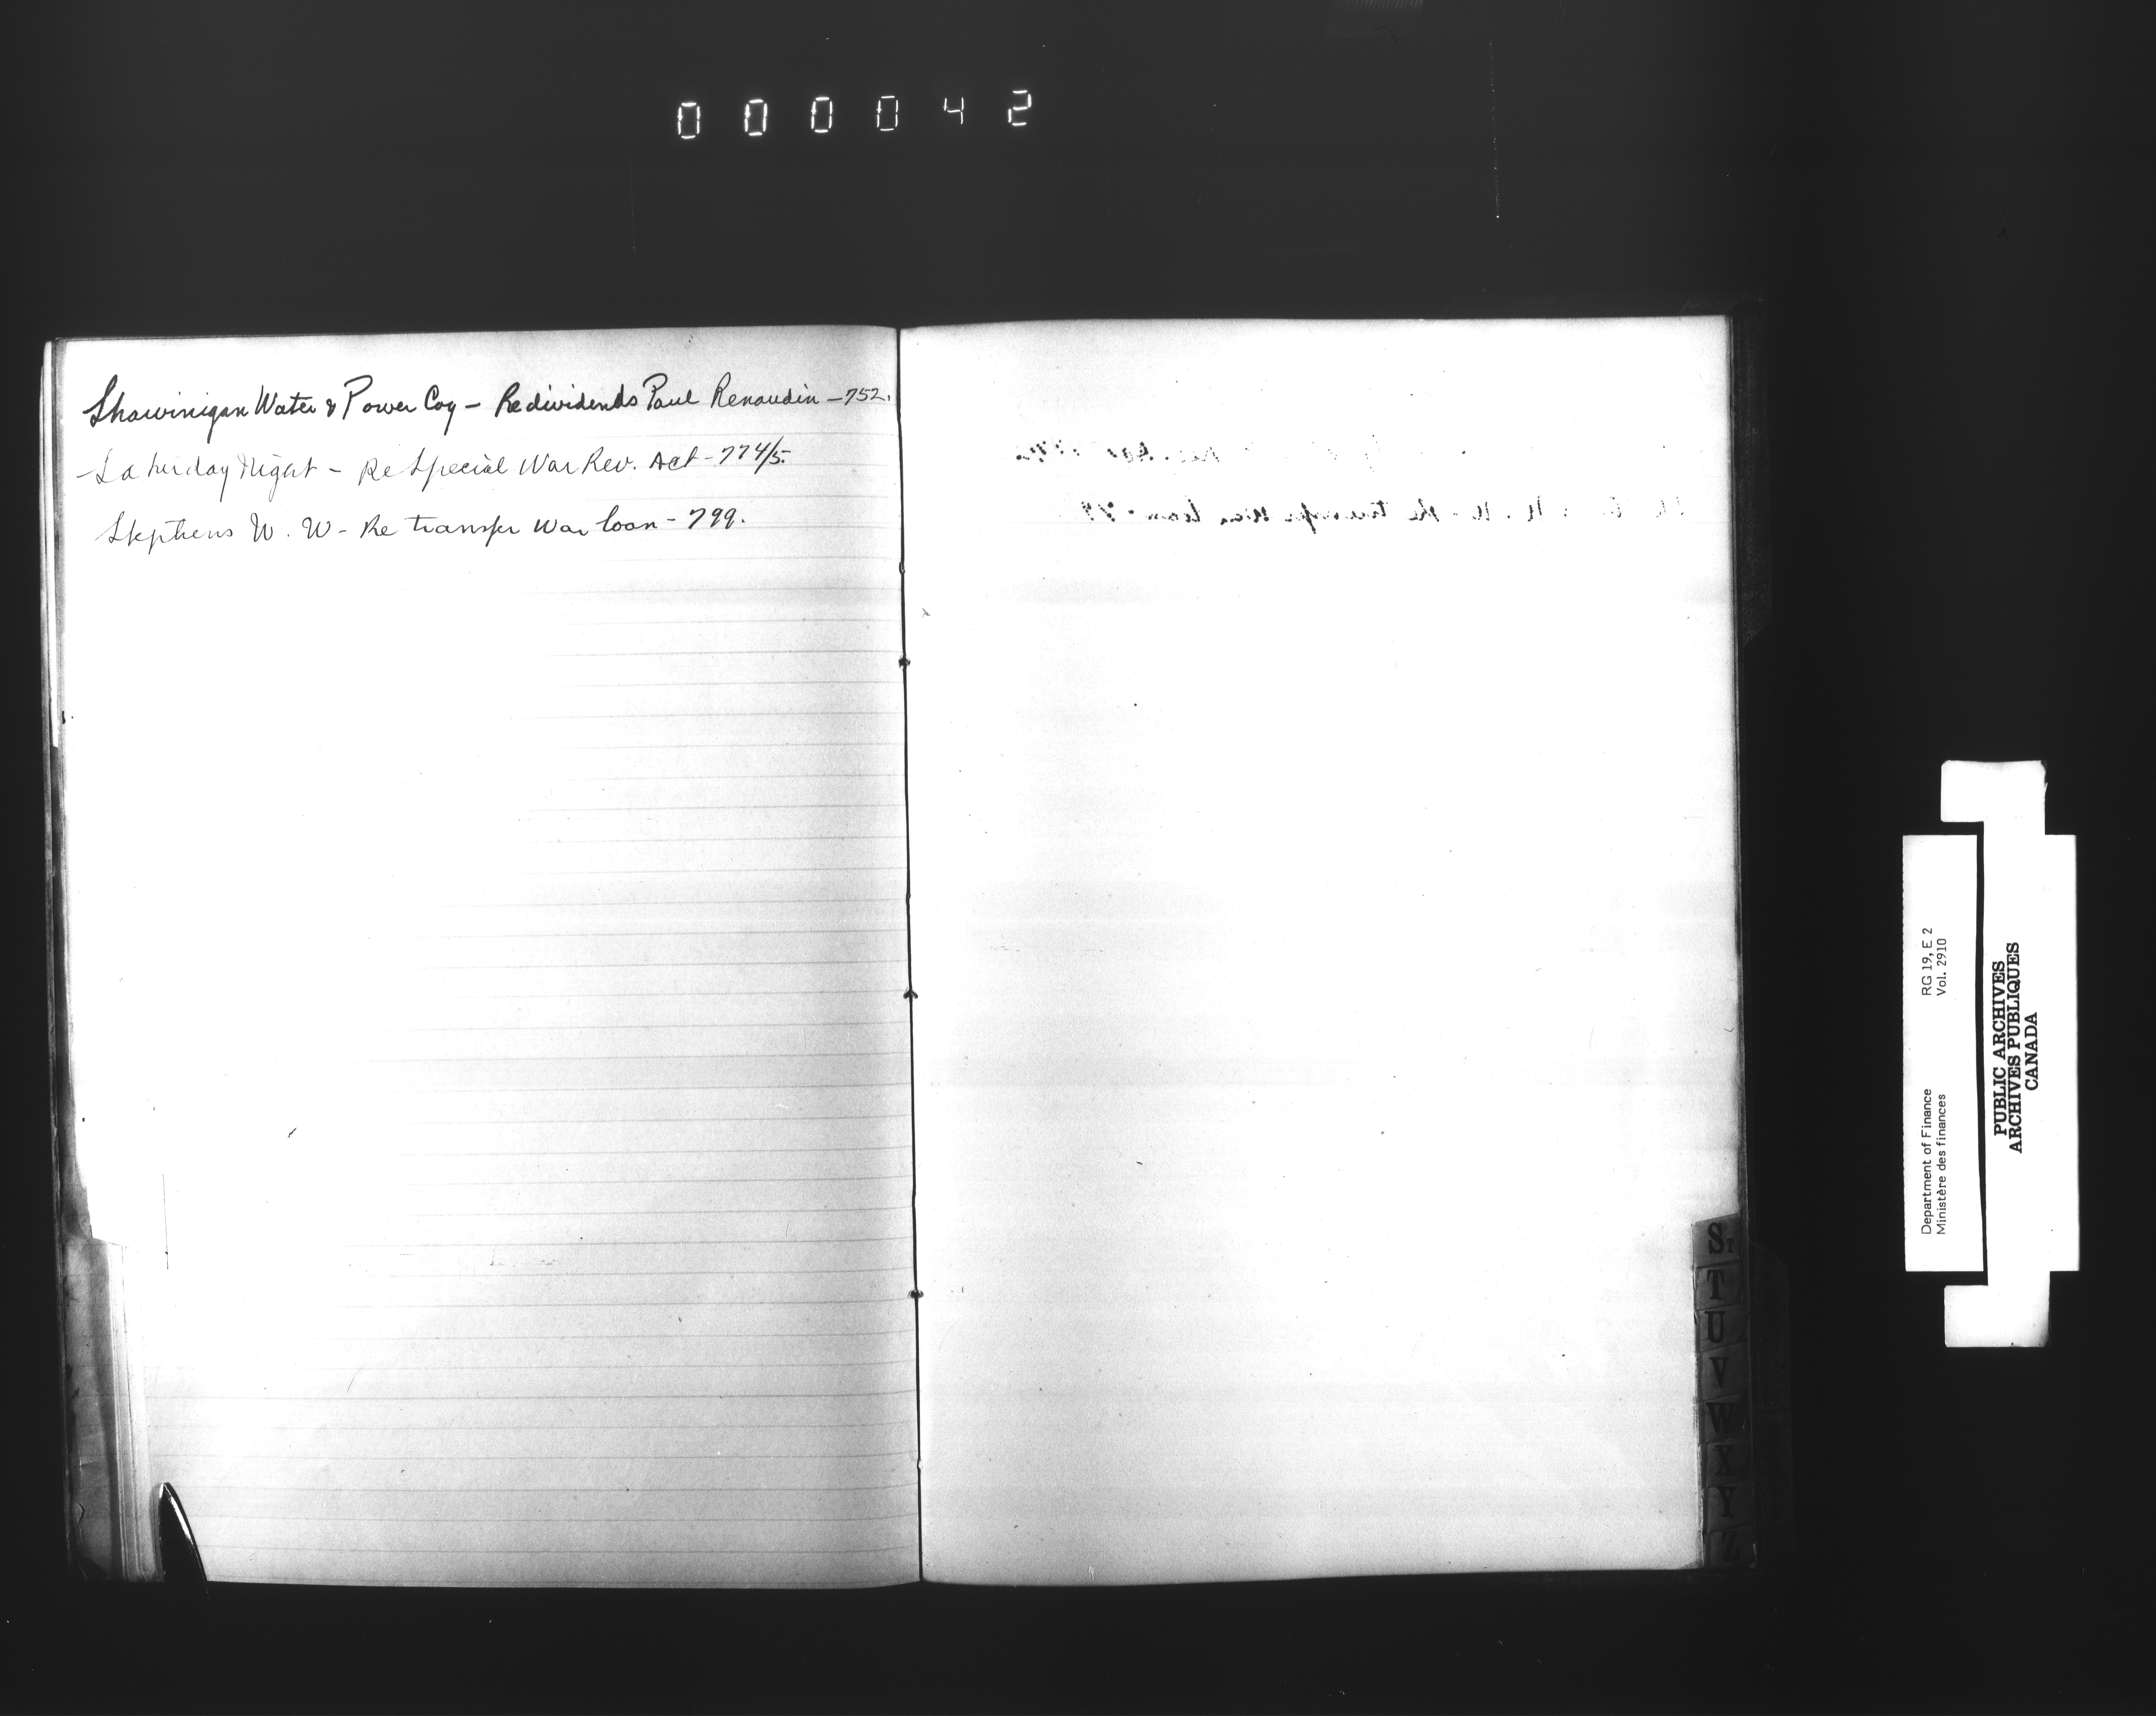 000042
Shawinigan Water & Power Coy - Re dividends Paul Renaudin - 752.
- Saturday Night - Re Special War Rev. Act - 774/5.
Stephens W. W - Re transfer War loan - 799.
S
T
U
V
W
X
Y
Z
Department of Finance RG 19, E 2
Ministère des finances Vol. 2910
PUBLIC ARCHIVES
ARCHIVES PUBLIQUES
CANADA